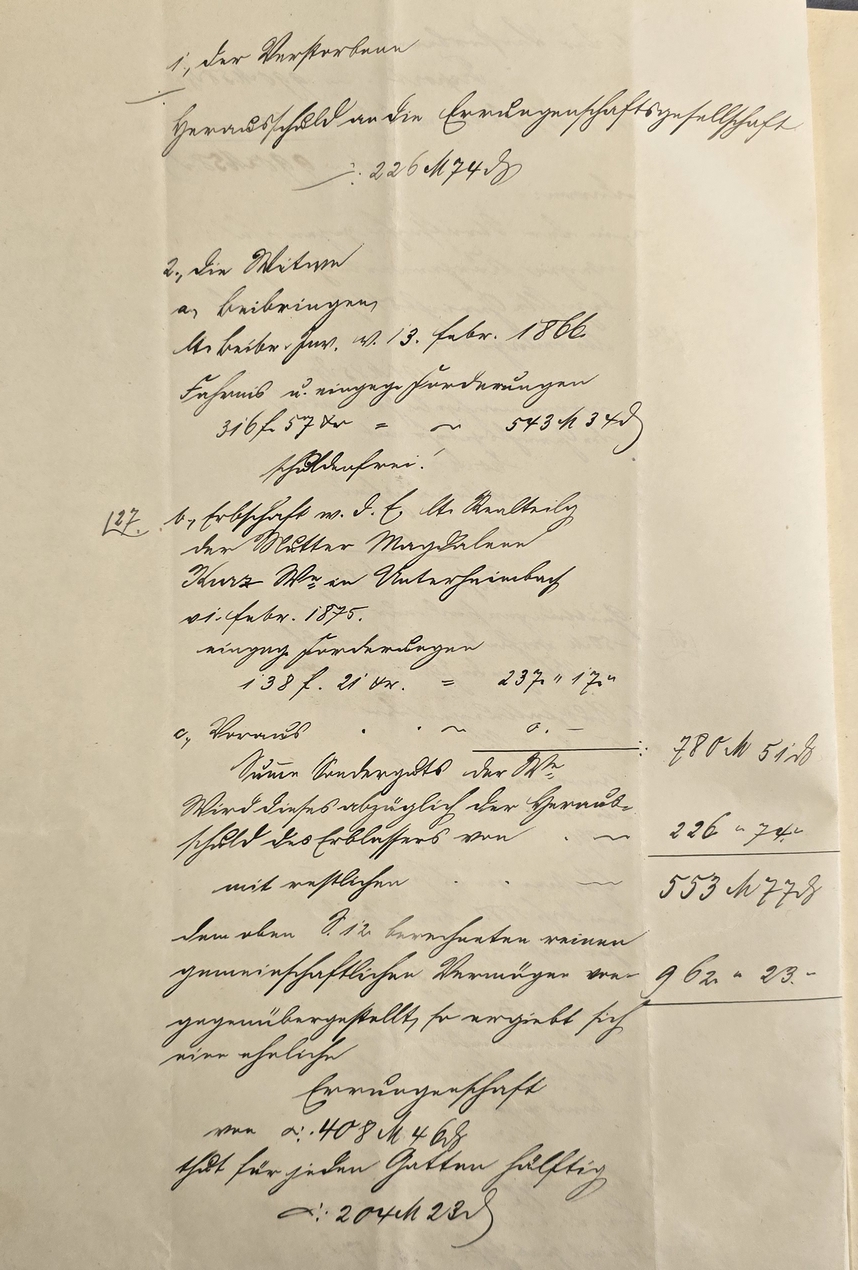 1., der Verstorbene
Herausschuld an die Errungenschaftsgesellschaft
∴ 226 M 74 ₰
2., die Witwe
a, Beibringen,
lt. Beibr. Inv. v. 13. Febr. 1866.
Fahrnis u. eingeg. Forderungen
316 f. 57 kr = ~ 543 M 34 ₰
schuldenfrei!
127. b, Erbschaft w. d. E. lt. Realteilg
der Mutter Magdalene
Kurz We in Unterheimbach
v. Febr. 1875.
eingeg. Forderungen
138 f. 21 kr. = 237. " 17. "
c, Voraus . . ~ 0. —
Summe Sonderguts der We. : 780 M 51 ₰
Wird dieses abzüglich der Heraus-
schuld des Erblassers von . ~ 226 " 74. "
mit restlichen . . ~ 553 M 77 ₰
dem oben S. 12 berechneten reinen
gemeinschaftlichen Vermögen von 962 " 23. "
gegenübergestellt, so ergiebt sich
eine eheliche
Errungenschaft
von ∴ 408 M 46 ₰
thut für jeden Gatten hälftig
∴ 204 M 23 ₰